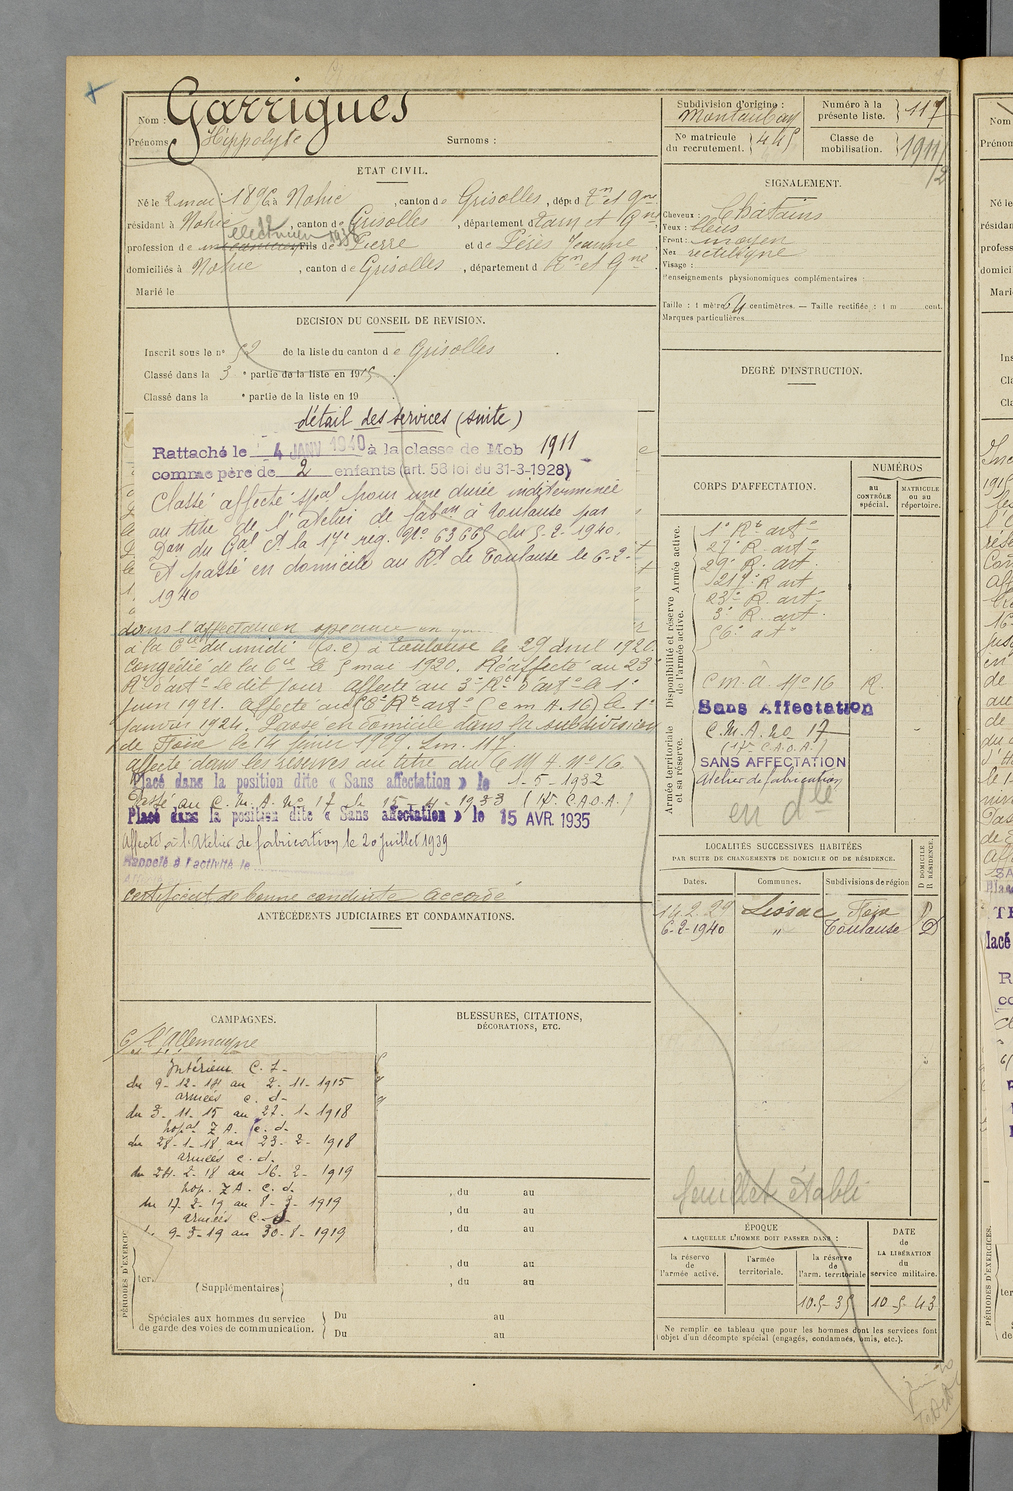 Nom : Garrigues
Prénoms Hippolyte Surnoms :
ETAT CIVIL.
Né le 2 mai 1896 à Nohic, canton de Grisolles, dépt d Tn et Gne
résidant à Nohic, canton de Grisolles, département d Tarn et Gne
électricien 1938
profession de mécanicien, Fils de Pierre et de Pérès Jeanne,
domiciliés à Nohic, canton de Grisolles, département d Tn et Gne.
Marié le
DECISION DU CONSEIL DE REVISION.
Inscrit sous le n° 52 de la liste du canton de Grisolles.
Classé dans la 3e partie de la liste en 1915.
Classé dans la e partie de la liste en 19
détail des services (suite)
Rattaché le 4 JANV 1940 à la classe de Mob 1911
comme père de 2 enfants (art. 58 loi du 31-3-1928)
Classé affecté spal pour une durée indéterminée
au titre de l'atelier de fabon à Toulouse par
Don du Gal Ct la 17e reg. No 63665 du 5-2-1940.
A passé en domicile au Rt de Toulouse le 6-2-
1940
dans l'affectation spéciale
à la Cie du midi (s. e) à Toulouse le 29 avril 1920.
Congédié de la Cie le 5 mai 1920. Réaffecté au 23e
Rt d'artie le dit jour affecté au 3e Rt d'artie le 1e
juin 1921. Affecté au 56e Rt artie (c m A. 16) le 1e
janvier 1924. Passé en domicile dans la subdivision
de Foix le 14 février 1929. Lm. 117.
affecté dans les réserves au titre du C M A. No 16.
Placé dans la position dite « Sans affectation » le 1-5-1932
Passé au C. M. A. No 17 le 15-4-1933 (17e C.A.O.A.)
Placé dans la position dite « Sans affectation » le 15 AVR. 1935
Affecté à l'Atelier de fabrication le 20 juillet 1939
Rappelé à l'activité le
certificat de bonne conduite accordé
ANTÉCÉDENTS JUDICIAIRES ET CONDAMNATIONS.
CAMPAGNES.
C/ l'Allemagne
Intérieur C. S-
du 9-12-14 au 2-11-1915
armées c. d-
du 3-11-15 au 27-1-1918
hopal Z A. C. d-
du 28-1-18 au 23-2-1918
armées c. d.
du 24-2-18 au 16-2-1919
hop. Z A. C. d.
du 17-2-19 au 8-3-1919
armées C. d
9-3-19 au 30-8-1919
PÉRIODES D'EXERCI
ter.
(Supplémentaires)
Spéciales aux hommes du service
de garde des voies de communication.
Du au
Du au
BLESSURES, CITATIONS,
DÉCORATIONS, ETC.
, du au
, du au
, du au
, du au
, du au
Subdivision d'origine :
Montauban
No matricule
du recrutement. 445
Numéro à la
présente liste. 117
Classe de
mobilisation. 1911/2
SIGNALEMENT.
Cheveux : Chatains
Yeux : bleus
Front : moyen
Nez rectiligne
Visage :
Renseignements physionomiques complémentaires :
Taille : 1 mètre 64 centimètres. — Taille rectifiée : 1 m cent.
Marques particulières
DEGRÉ D'INSTRUCTION.
CORPS D'AFFECTATION.
NUMÉROS
au
CONTRÔLE
spécial.
MATRICULE
ou au
répertoire.
Armée active.
Disponibilité et réserve
de l'armée active.
Armée territoriale
et sa réserve.
1e Rt artie
27e R. artie
29e R. art.
121e R art
23e R. artie
3e R. art
56e artie
C m. A No 16 R.
Sans Affectation
C. M. A. No 17
(17e C.A.O.A.)
SANS AFFECTATION
Atelier de fabrication
en dlle
LOCALITÉS SUCCESSIVES HABITÉES
PAR SUITE DE CHANGEMENTS DE DOMICILE OU DE RÉSIDENCE.
D DOMICILE
R RÉSIDENCE.
Dates. Communes. Subdivisions de région
14.2.29 Lissac Foix D
6-2-1940 " Toulouse D
feuillet établi
ÉPOQUE
A LAQUELLE L'HOMME DOIT PASSER DANS :
la réserve
de
l'armée active.
l'armée
territoriale.
la réserve
de
l'arm. territoriale
DATE
de
LA LIBÉRATION
du
service militaire.
10-5-35 10-5-43
Ne remplir ce tableau que pour les hommes dont les services font
l'objet d'un décompte spécial (engagés, condamnés, omis, etc.).